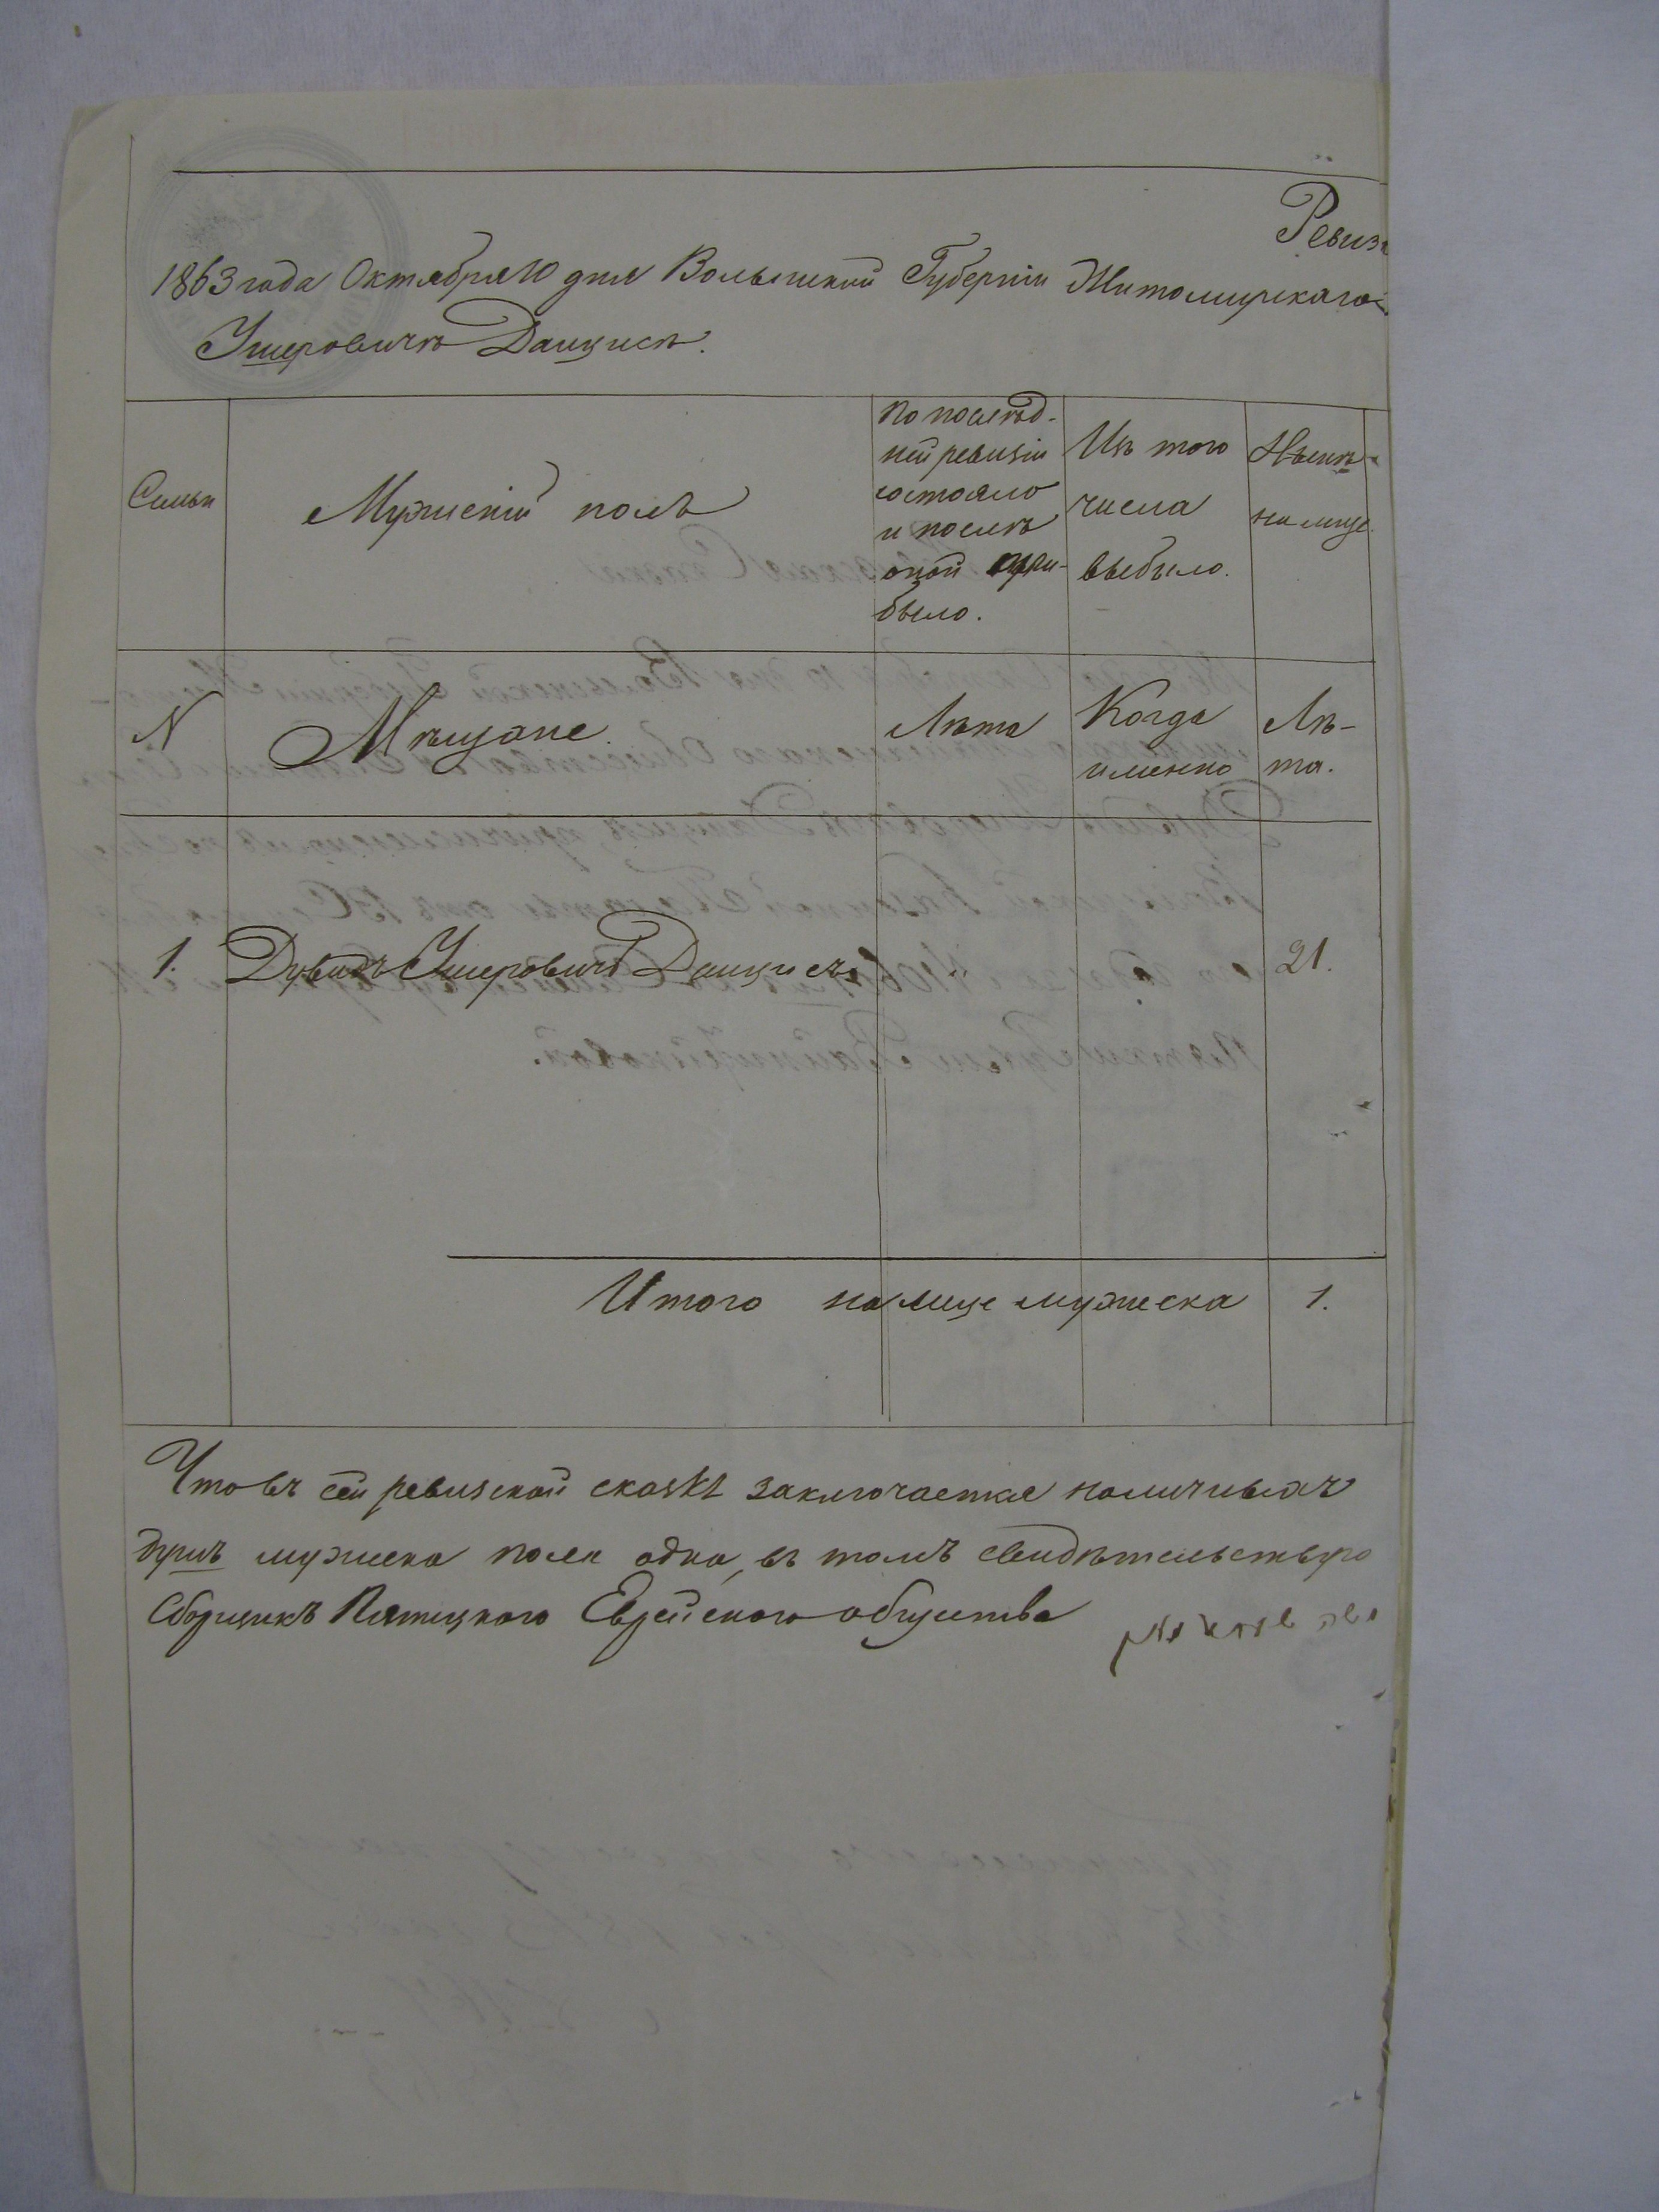 Ревиз
1863 года Октября 10 дня Волынской Губерніи Житомирскаго
Ушеровичъ Данцисъ.
Семьи
Мужескій полъ
По послѣд-
ней ревизіи
состояло
и послѣ
оной при-
было.
Изъ того
числа
выбыло.
Нынѣ
на лице.
N
Мѣщане.
Лѣта
Когда
именно
Лѣ-
та.
1. Дувидъ Ушеровичъ Данцисъ 21.
Итого на лице мужеска 1.
Что въ сей ревизской сказкѣ заключается наличныхъ
душъ мужеска пола одна, въ томъ свидѣтельствую
Сборщикъ Пятицкого Еврейского общества